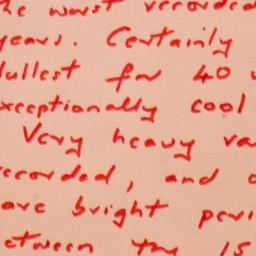 he worst recorded
years. Certainly
dullest for 40
exceptionally cool
Very heavy
recorded, and
are bright peri
etween the 15